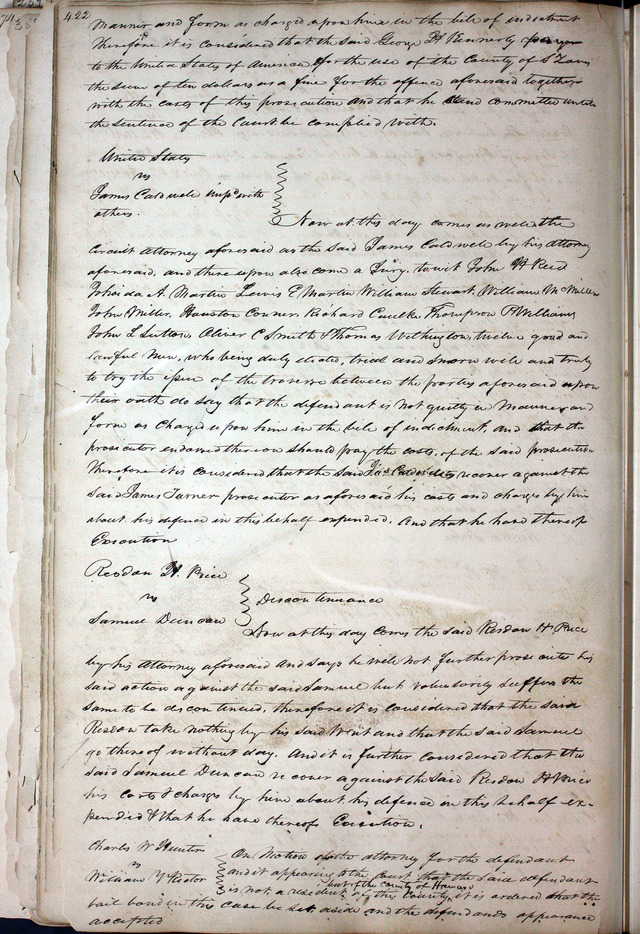 422
manner and form as charged upon him in the bile of indictment
Therefore it is considered that the said George H Kennerly
to the United States of America for the use of the County of St Louis
the sum of ten dollars as a fine for the offence aforesaid together
with the costs of this prosecution and that he stand committed until
the sentence of the Court be complied with.
United States
vs
James Caldwele imp.d with
others.
Now at this day comes as wele the
Circuit Attorney aforesaid as the said James Caldwele by his Attorney
aforesaid, and thereupon also come a Jury, to wit John H Reed
A. Martin Lewis E Martin William Stewart, William McMillen
John Miller, Huston Conner, Richard Caulk, Thompson P Williams
John L Sutton, Oliver C Smith & Thomas Withington, twelve good and
lawful men, who being duly elected, tried and sworn wele and truly
to try the issue of the traverse between the parties aforesaid upon
their oath do say that the defendant is not guilty in Manner and
form as Charged upon him in the bile of indictment, and that the
prosecutor endorsed thereon should pay the costs, of the said prosecution
Therefore it is considered that the said Jas Caldwele recover against the
said James Turner prosecutor as aforesaid his costs and charges by him
about his defence in this behalf expended. And that he have thereof
Execution
Resdon H. Price
vs
Samuel Duncan
Discontinuance
Now at this day comes the said Resdon H Price
by his Attorney aforesaid and says he wele not further prosecute his
said action against the said Samuel but voluntarily suffers the
same to be discontinued, therefore it is considered that the said
Resdon take nothing by his said Writ and that the said Samuel
go thereof without day. And it is further considered that the
said Samuel Duncan recover against the said Resdon H Price
his costs & charges by him about his defence in this behalf ex-
pended & that he have thereof Execution.
Charles W Hunter
vs
William Y Rector
On Motion of the attorney for the defendant
and it appearing to the Court that the said defendant
but of the County of Howard
is not a resident of this County, it is ordered that the
bail bond in this case be set aside and the defendants appearance
accepted